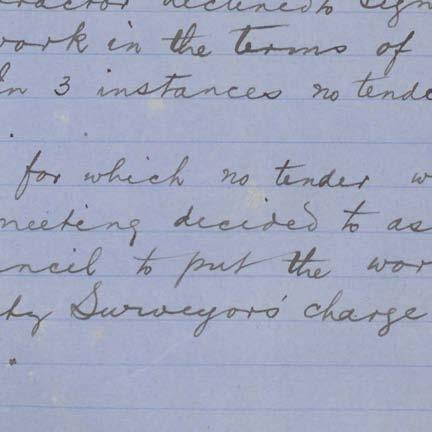 ractor declined to sign
work in the terms of
In 3 instances no tende
for which no tender w
meeting decided to as
ncil to put the wor
ty Surveyors' charge